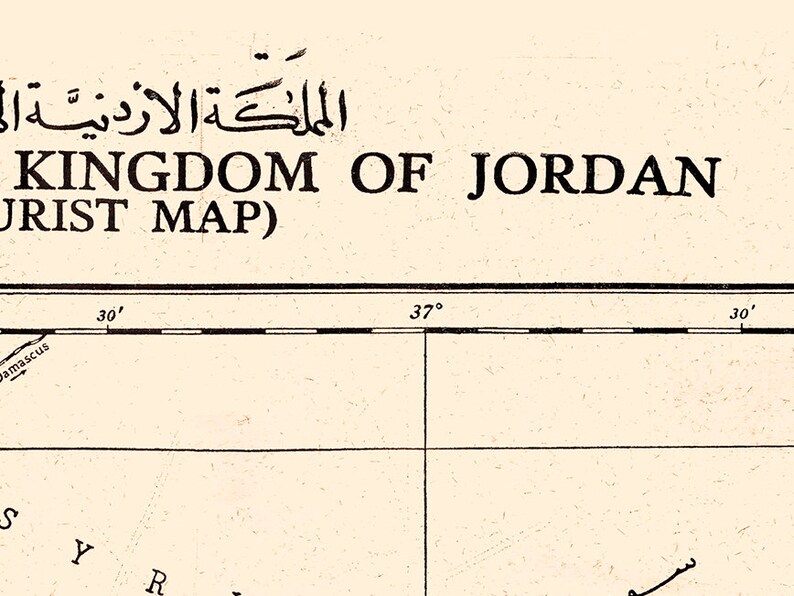 المملكة الاردنية
KINGDOM OF JORDAN
MAP)
30' 37° 30'
Damascus
S Y R